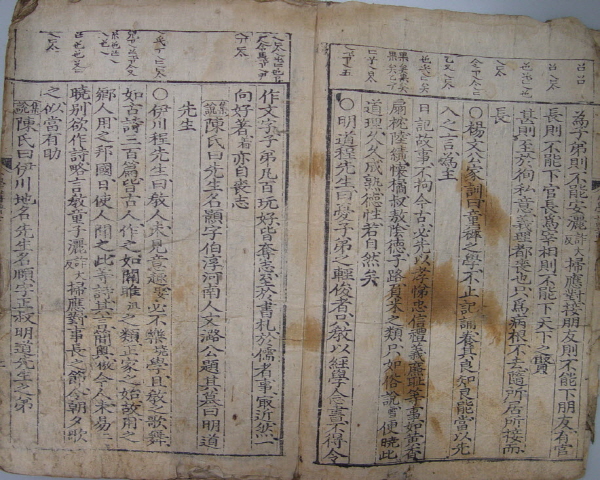 為子弟則不能安灑掃應對接朋友則不能下朋友有官
長則不能下官長為宰相則不能下天下之賢
甚則至於徇私意義理都喪也只為病根不去隨所居所接而
長
○楊文公家訓曰童穉之學不止記誦養其良知良能當以先
入之言為主
日記故事不拘今古必先以孝悌忠信禮義廉恥等事如黃香
扇枕陸績懷橘叔敖陰德子路負米之類只如俗說便曉此
道理久久成熟德性若自然矣
○明道程先生曰憂子弟之輕俊者只教以經學念書不得令
作文字子弟凡百玩好皆奪志至於書札於儒者事最近然一
向好著亦自喪志
集說陳氏曰先生名顥字伯淳河南人文潞公題其墓曰明道
先生
○伊川程先生曰教人未見意趣必不樂學且教之歌舞
如古詩三百篇皆古人作之如關雎之類正家之始故用之
鄉人用之邦國日使人聞之此等詩其言簡奧今人未易
曉別欲作詩略言教童子灑掃應對事長之節令朝夕歌
之似當有助
集說陳氏曰伊川地名先生名頤字正叔明道先生之弟